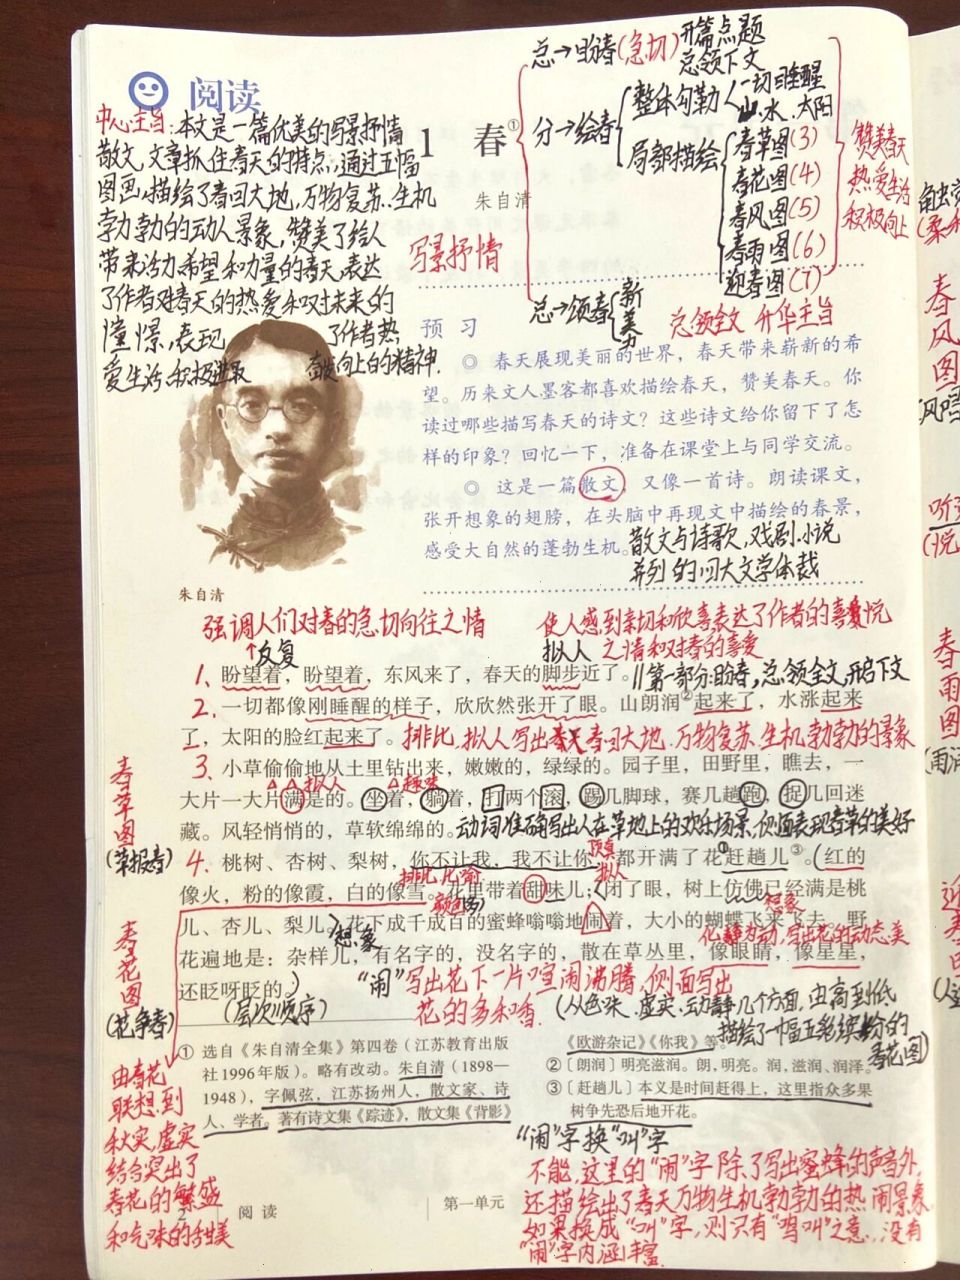 阅读
中心主旨：本文是一篇优美的写景抒情
散文，文章抓住春天的特点，通过五幅
图画，描绘了春回大地，万物复苏、生机
勃勃的动人景象，赞美了给人
带来活力、希望和力量的春天，表达
了作者对春天的热爱和对未来的
憧憬，表现了作者热
爱生活、积极进取、奋发向上的精神。
1 春①
朱自清
写景抒情
总→盼春(急切)开篇点题
总领下文
分→绘春
整体勾勒
一切回睡醒
山、水、太阳
局部描绘
春草图(3)
春花图(4)
春风图(5)
春雨图(6)
迎春图(7)
赞美春天
热爱生活
积极向上
总→颂春
新
美
力
总领全文 升华主旨
预习
◎ 春天展现美丽的世界，春天带来崭新的希
望。历来文人墨客都喜欢描绘春天，赞美春天。你
读过哪些描写春天的诗文？这些诗文给你留下了怎
样的印象？回忆一下，准备在课堂上与同学交流。
◎ 这是一篇散文，又像一首诗。朗读课文，
张开想象的翅膀，在头脑中再现文中描绘的春景，
感受大自然的蓬勃生机。
散文与诗歌，戏剧、小说
并列的四大文学体裁
朱自清
强调人们对春的急切向往之情
↑反复
使人感到亲切和欣喜表达了作者的喜悦
拟人 之情和对春的喜爱
1、盼望着，盼望着，东风来了，春天的脚步近了。
//第一部分：盼春，总领全文，开启下文
2、一切都像刚睡醒的样子，欣欣然张开了眼。山朗润②起来了，水涨起来
了，太阳的脸红起来了。
排比、拟人写出春回大地、万物复苏、生机勃勃的景象
3、小草偷偷地从土里钻出来，嫩嫩的，绿绿的。园子里，田野里，瞧去，一
拟人
趣味
大片一大片满是的。坐着，躺着，打两个滚，踢几脚球，赛几趟跑，捉几回迷
藏。风轻悄悄的，草软绵绵的。
动词准确写出人在草地上的欢乐场景，侧面表现春草的美好
春草图
(草报春)
4、桃树、杏树、梨树，你不让我，我不让你，都开满了花赶趟儿③。(红的
顶真
拟人
排比 比喻
像火，粉的像霞，白的像雪。花里带着甜味儿；闭了眼，树上仿佛已经满是桃
想象
儿、杏儿、梨儿。花下成千成百的蜜蜂嗡嗡地闹着，大小的蝴蝶飞来飞去。野
想象
化静为动，写出花的动态美
花遍地是：杂样儿，有名字的，没名字的，散在草丛里，像眼睛，像星星，
还眨呀眨的。)
(层次顺序)
“闹”写出花下一片喧闹沸腾，侧面写出
花的多和香。
(从色味、虚实、动静几个方面，由高到低
描绘了一幅五彩缤纷的
春花图)
春花图
(花争春)
由春花
联想到
秋实，虚实
结合突出了
春花的繁盛
和气味的甜美
① 选自《朱自清全集》第四卷（江苏教育出版
社1996年版）。略有改动。朱自清（1898—
1948），字佩弦，江苏扬州人，散文家、诗
人、学者。著有诗文集《踪迹》，散文集《背影》
《欧游杂记》《你我》等。
②〔朗润〕明亮滋润。朗，明亮。润，滋润、润泽。
③〔赶趟儿〕本义是时间赶得上，这里指众多果
树争先恐后地开花。
“闹”字换“叫”字
不能，这里的“闹”字除了写出蜜蜂的声音外，
还描绘出了春天万物生机勃勃的热闹景象，
如果换成“叫”字，则只有“鸣叫”之意，没有
“闹”字内涵丰富。
2 阅读
第一单元
春
风
图
春
雨
图